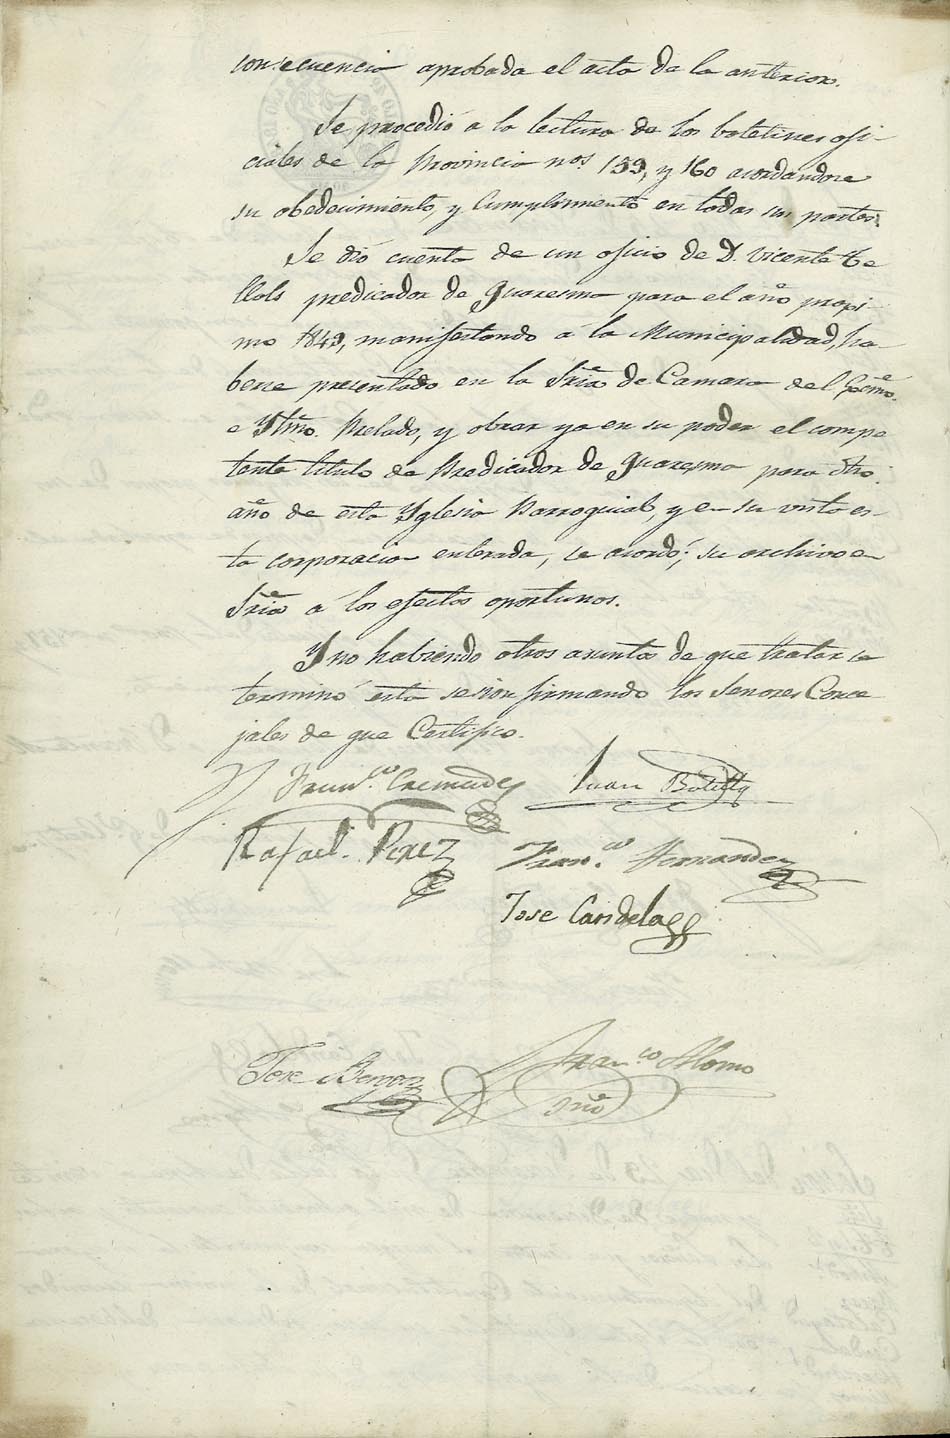 consecuencia aprobada el acta de la anterior.
Se procedió a la lectura de los boletines ofi-
ciales de la Provincia nos. 159, y 160 acordandose
su obedecimiento, y cumplimiento en todas sus partes.
Se dió cuenta de un oficio de D. Vicente Te
llols predicador de Quaresma para el año proxi-
mo 1849, manifestando á la Municipalidad, ha-
berse presentado en la Sria de Camara del Excmo.
e Yltmo. Prelado, y obrar ya en su poder el compe
tente titulo de Predicador de Quaresma para dho.
año de esta Yglesia Parroquial, y en su vista es-
ta corporacion enterada, se acordó; su archivo en
Sria á los efectos oportunos.
Y no habiendo otros asuntos de que tratar se
terminó esta sesion firmando los Señores Conce
jales de que Certifico.
Franco. Cremades Juan Botella
Rafael Perez Franco. Hernandez
Jose Candela
Jose Franco Alomo
Srio